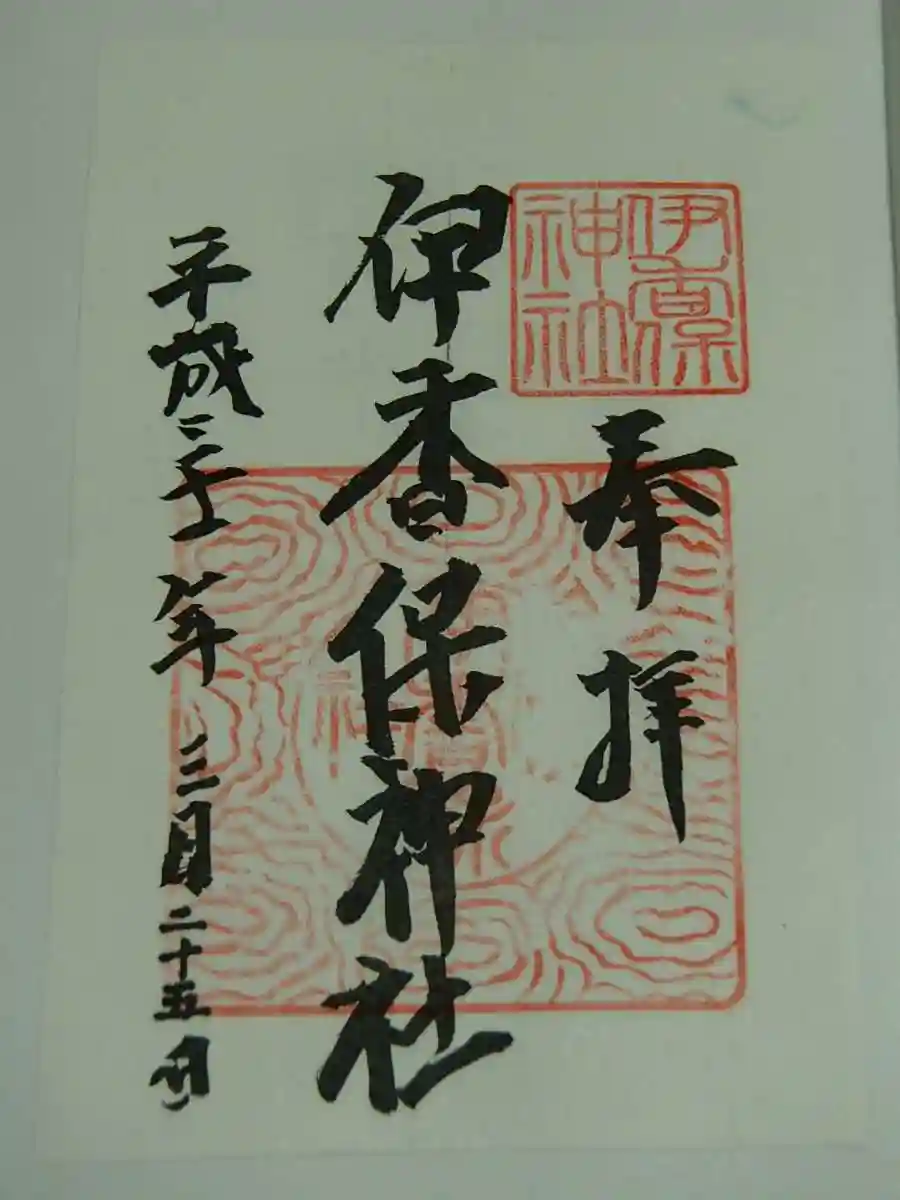 伊香保
神社
奉拝
伊香保神社
平成三十一年三月二十五日